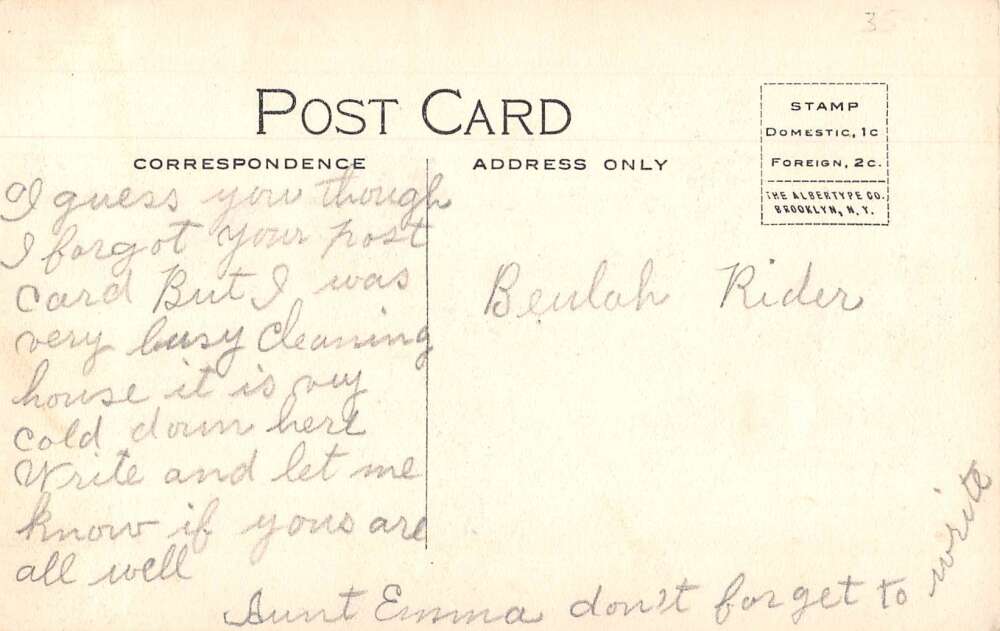 35
POST CARD
CORRESPONDENCE
ADDRESS ONLY
STAMP
DOMESTIC, 1c
FOREIGN, 2c.
THE ALBERTYPE CO.
BROOKLYN, N. Y.
I guess you though
I forgot your post
card But I was
very busy cleaning
house it is very
cold down here
Write and let me
know if yous are
all well
Aunt Emma don't forget to write
Beulah Rider